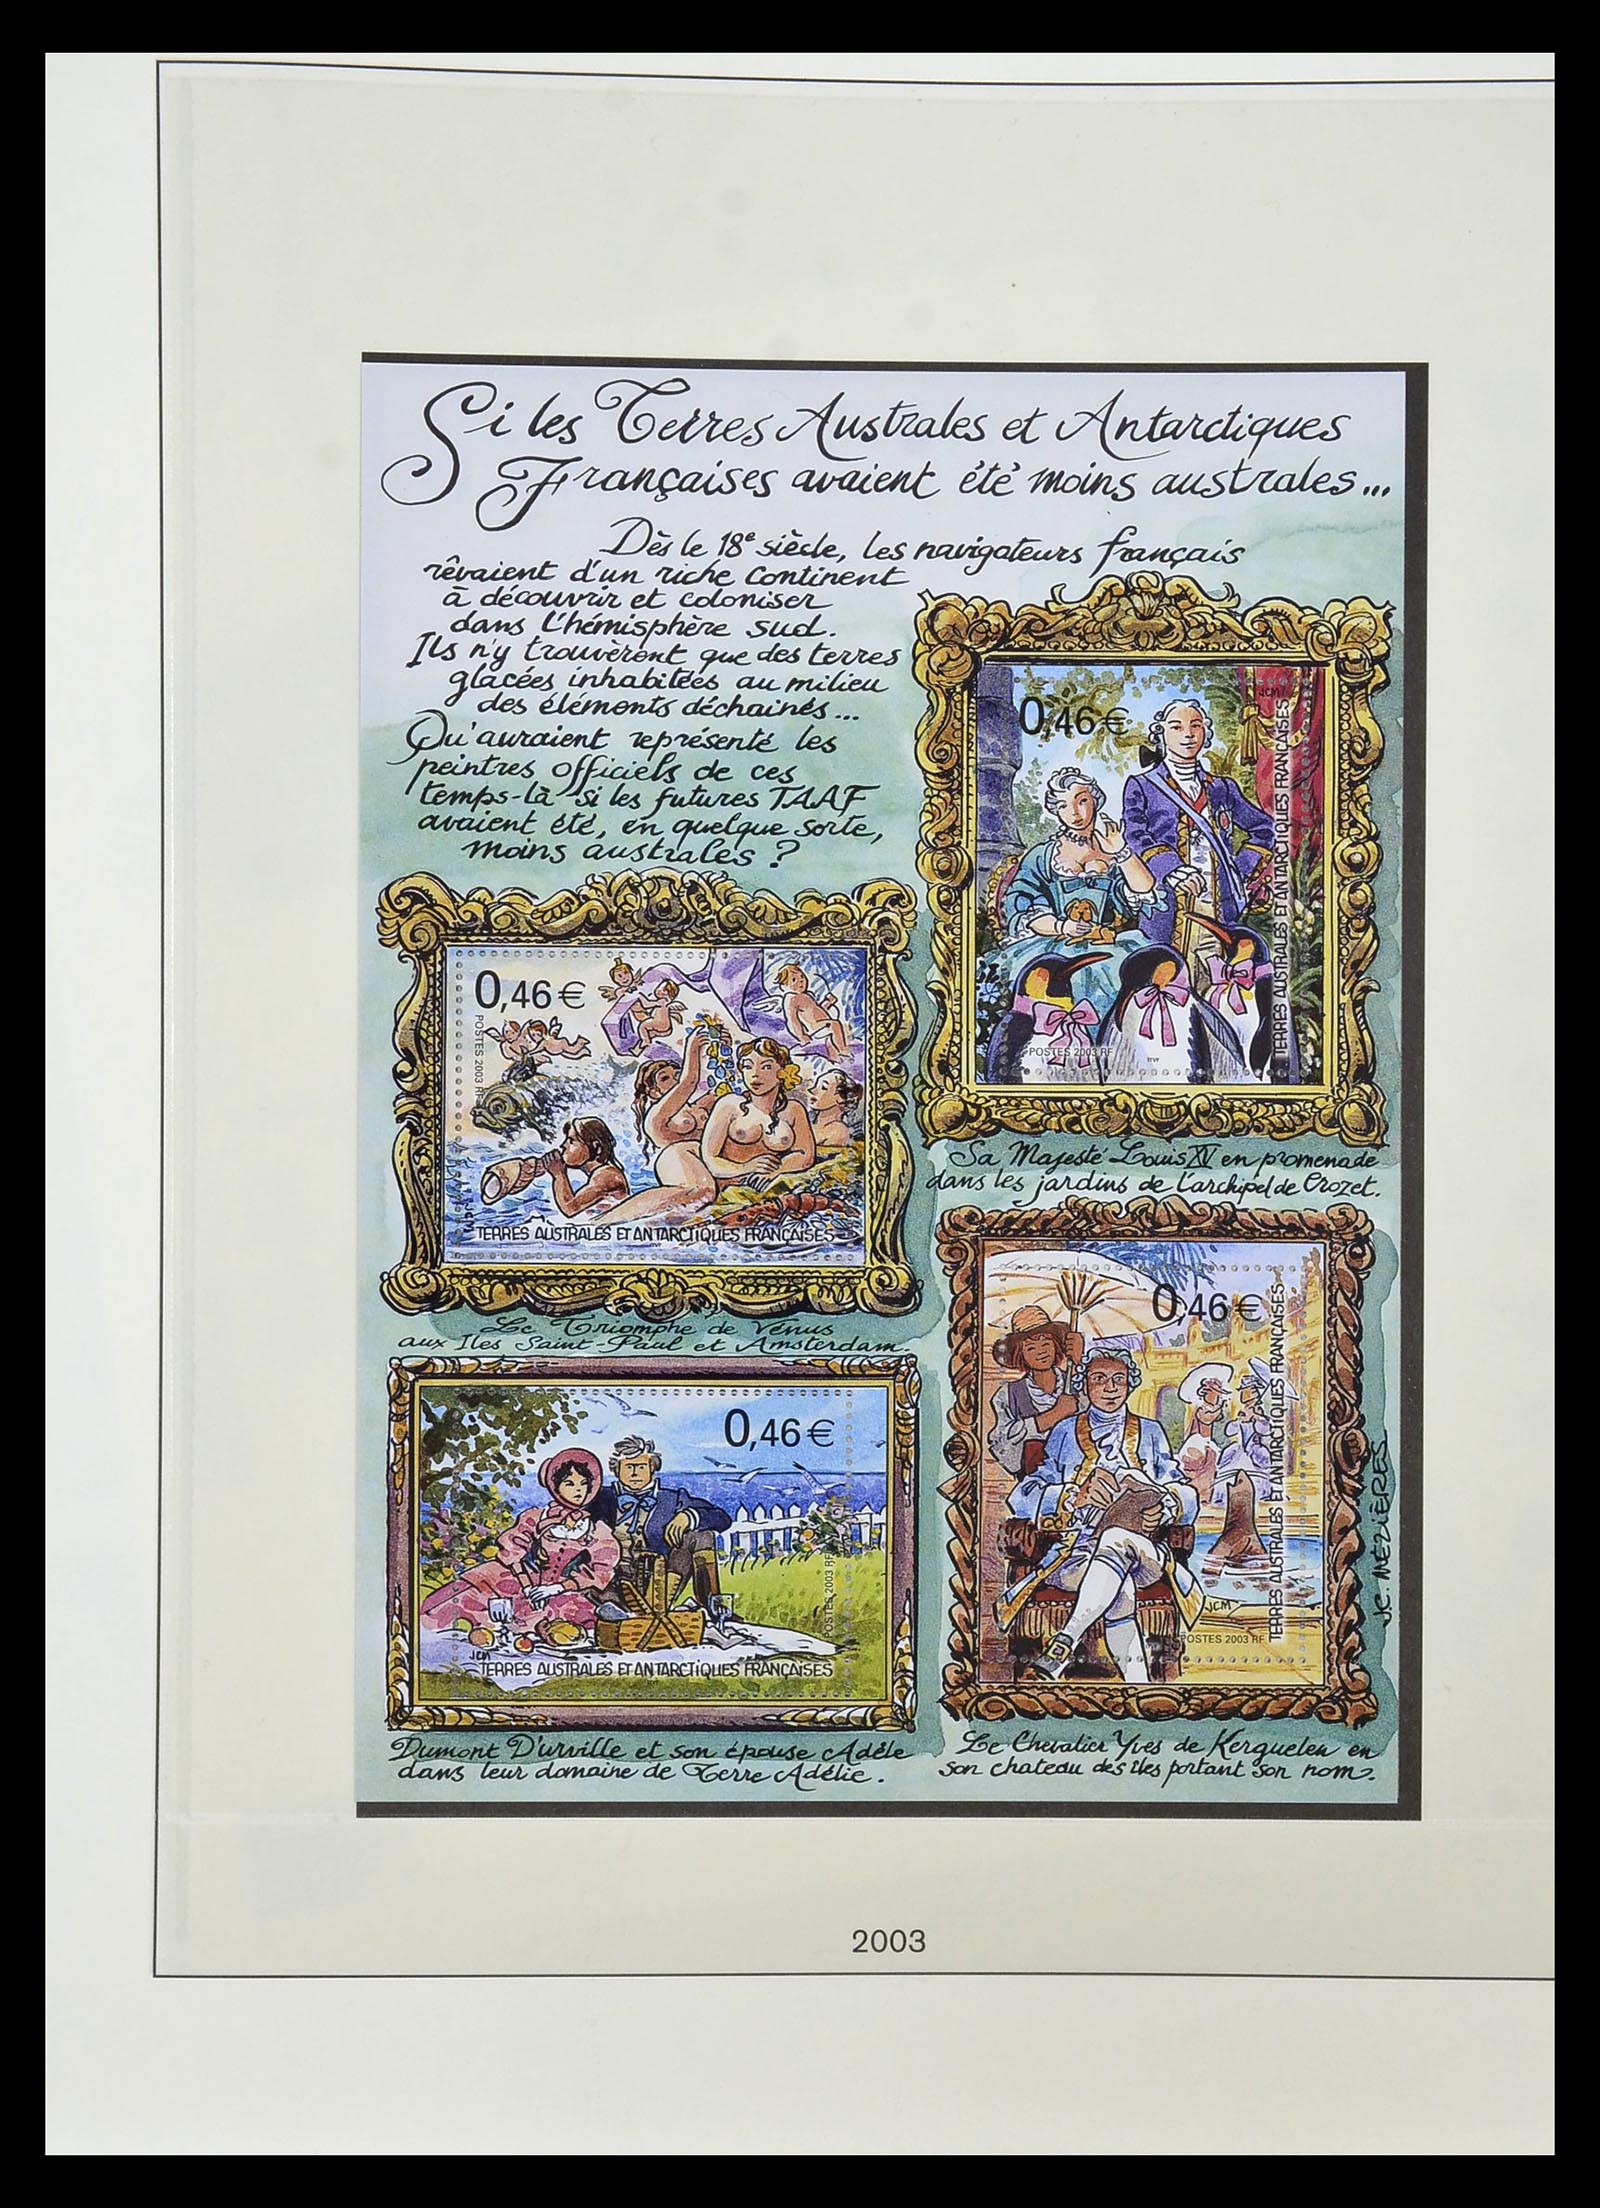 Si les Terres Australes et Antarctiques
Françaises avaient été moins australes...
Dès le 18e siècle, les navigateurs français
rêvaient d'un riche continent
à découvrir et coloniser
dans l'hémisphère sud.
Ils n'y trouvèrent que des terres
glacées inhabitées au milieu
des éléments déchainés...
Qu'auraient représenté les
peintres officiels de ces
temps-là si les futures TAAF
avaient été, en quelque sorte,
moins australes ?
JCM
0,46 €
TERRES AUSTRALES ET ANTARCTIQUES FRANÇAISES
POSTES 2003 RF
ITVF
Sa Majesté Louis XV en promenade
dans les jardins de l'archipel de Crozet.
0,46 €
POSTES 2003 RF
JCM
TERRES AUSTRALES ET ANTARCTIQUES FRANÇAISES
Le Triomphe de Vénus
aux Iles Saint-Paul et Amsterdam.
0,46 €
TERRES AUSTRALES ET ANTARCTIQUES FRANÇAISES
JCM
POSTES 2003 RF
JC. MÉZIÈRES
Le Chevalier Yves de Kerguelen en
son chateau des îles portant son nom.
0,46 €
POSTES 2003 RF
JCM
TERRES AUSTRALES ET ANTARCTIQUES FRANÇAISES
Dumont D'urville et son épouse Adèle
dans leur domaine de Terre Adélie.
2003